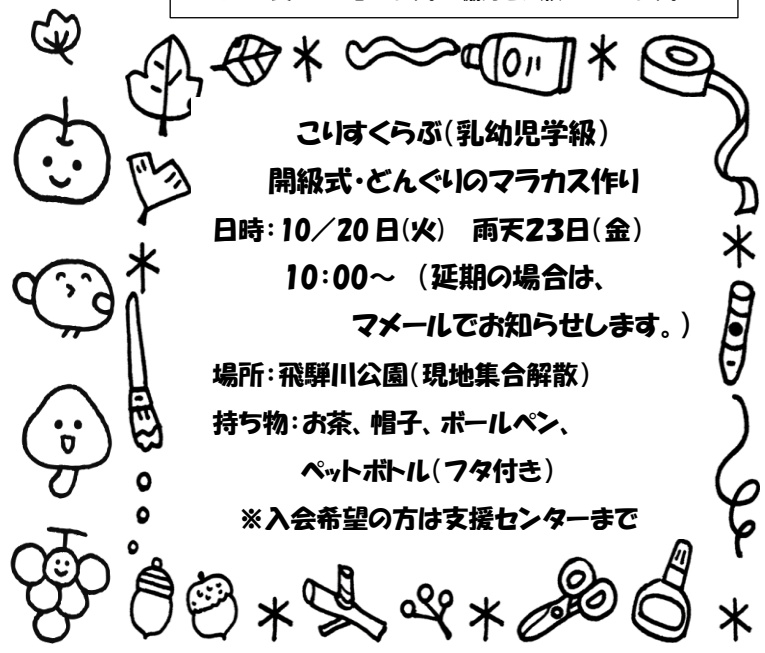 こりすくらぶ(乳幼児学級)
開級式・どんぐりのマラカス作り
日時:10/20日(火) 雨天23日(金)
10:00~ (延期の場合は、
マメールでお知らせします。)
場所:飛騨川公園(現地集合解散)
持ち物:お茶、帽子、ボールペン、
ペットボトル(フタ付き)
※入会希望の方は支援センターまで